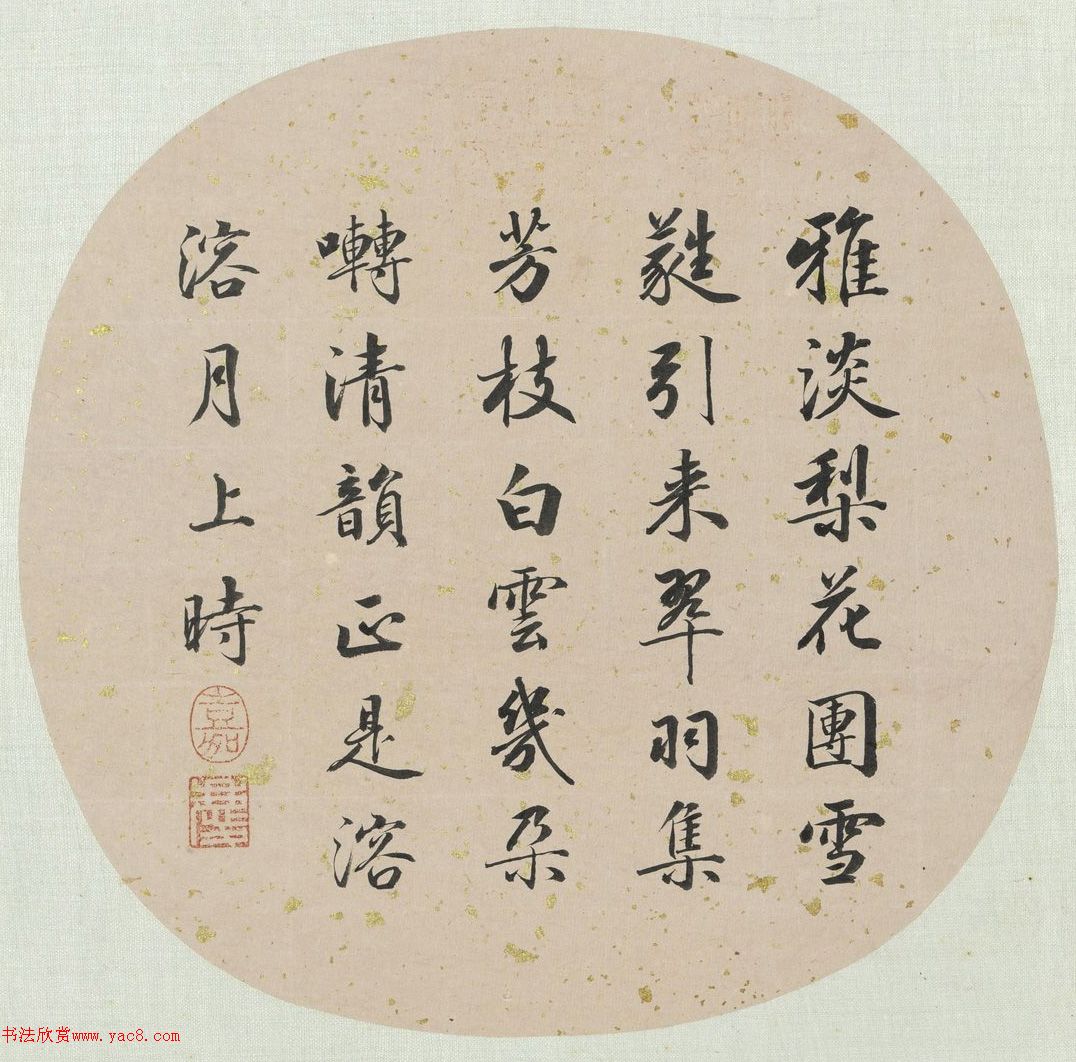 雅淡梨花團雪
蕤引来翠羽集
芳枝白雲幾朵
囀清韻正是溶
溶月上時
嘉
书法欣赏www.yac8.com